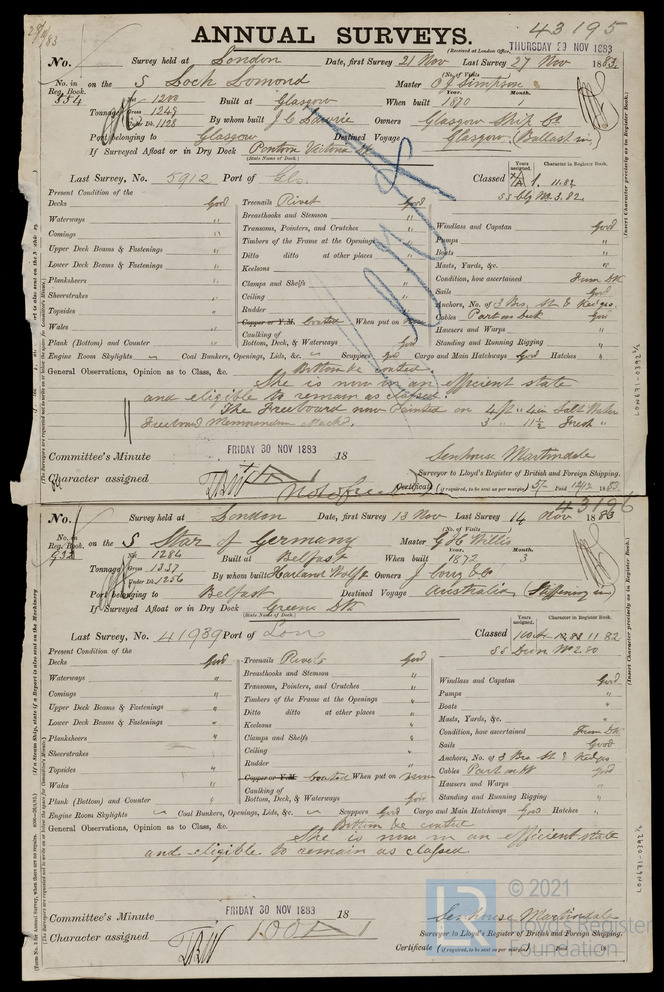 28/11/83
ANNUAL SURVEYS.
43195
(Received at London Office, THURSDAY 29 NOV 1883
No. Survey held at London Date, first Survey 21 Nov Last Survey 27 Nov 1883
(No. of Visits
No. in Reg. Book. 354 on the S Loch Lomond Master
Net 1200 Built at Glasgow When built Year. 1870 Month.
Tonnage Gross 1249 By whom built J & G Lawrie Owners Glasgow Ship Co
Under Dk. 1128
Port belonging to Glasgow Destined Voyage Glasgow (Ballast in)
If Surveyed Afloat or in Dry Dock Pontoon Victoria Dk
(State Name of Dock.)
Last Survey, No. 5912 Port of Gls. Classed Years assigned. Character in Register Book.
A 1. 11.82
Present Condition of the
Decks Good Treenails Rivets Good
Waterways " Breasthooks and Stemson "
Comings " Transoms, Pointers, and Crutches " Windlass and Capstan Good
Upper Deck Beams & Fastenings " Timbers of the Frame at the Openings " Pumps "
Ditto ditto at other places " Boats "
Lower Deck Beams & Fastenings " Keelsons " Masts, Yards, &c. "
Planksheers " Clamps and Shelfs " Condition, how ascertained From Dk
Sheerstrakes " Ceiling " Sails Good
Topsides " Rudder " Anchors, No. of 3 Brs. St & Kedges
Wales " Copper or Y.M. Coated When put on now Cables Part on deck Good
Plank (Bottom) and Counter " Caulking of Bottom, Deck, & Waterways Good Hausers and Warps "
Standing and Running Rigging "
Engine Room Skylights Coal Bunkers, Openings, Lids, &c. Scuppers Good Cargo and Main Hatchways Good Hatches "
General Observations, Opinion as to Class, &c. Bottom &c coated.
She is now in an efficient state
and eligible to remain as classed.
The Freeboard now Painted on 4 ft " 4 in Salt Water
Freeboard Memorandum 3 " 11½ Fresh "
Committee's Minute FRIDAY 30 NOV 1883 18 Senhouse Martindale
Character assigned Surveyor to Lloyd's Register of British and Foreign Shipping.
Certificate (if required, to be sent as per margin) 5/- Paid 14/12 1883
43196
No. Survey held at London Date, first Survey 13 Nov Last Survey 14 Nov 1883
(No. of Visits
No. in Reg. Book. 932 on the S Star of Germany Master G H Willis
Net 1284 Built at Belfast When built Year. 1872 Month. 3
Tonnage Gross 1337 By whom built Harland Wolff Owners J Corry & Co
Under Dk. 1256
Port belonging to Belfast Destined Voyage Australia (Stiffening in)
If Surveyed Afloat or in Dry Dock Greens Dk
(State Name of Dock.)
Last Survey, No. 41939 Port of Lon Classed Years assigned. Character in Register Book.
100A1 11 82
SS Lon No 2 80
Present Condition of the
Decks Good Treenails Rivets Good
Waterways " Breasthooks and Stemson " Windlass and Capstan Good
Comings " Transoms, Pointers, and Crutches " Pumps "
Upper Deck Beams & Fastenings " Timbers of the Frame at the Openings " Boats "
Lower Deck Beams & Fastenings " Ditto ditto at other places " Masts, Yards, &c. "
Keelsons "
Planksheers " Clamps and Shelfs " Condition, how ascertained From Dk
Sheerstrakes Ceiling " Sails Good
Topsides " Rudder " Anchors, No. of 3 Brs St & Kedges
Wales " Copper or Y.M. Coated When put on now Cables Part on dk Good
Plank (Bottom) and Counter " Caulking of Bottom, Deck, & Waterways Good Hausers and Warps "
Standing and Running Rigging "
Engine Room Skylights Coal Bunkers, Openings, Lids, &c. Scuppers Good Cargo and Main Hatchways Good Hatches "
General Observations, Opinion as to Class, &c. Bottom &c coated
She is now in an efficient state
and eligible to remain as classed
Committee's Minute FRIDAY 30 NOV 1883 18 Senhouse Martindale
Character assigned 100A1 Surveyor to Lloyd's Register of British and Foreign Shipping.
Certificate (if required, to be sent as per margin) Paid 18
(Insert Character precisely as in Register Book.)
LON671-0392½
© 2021
LR Lloyd's Register
Foundation